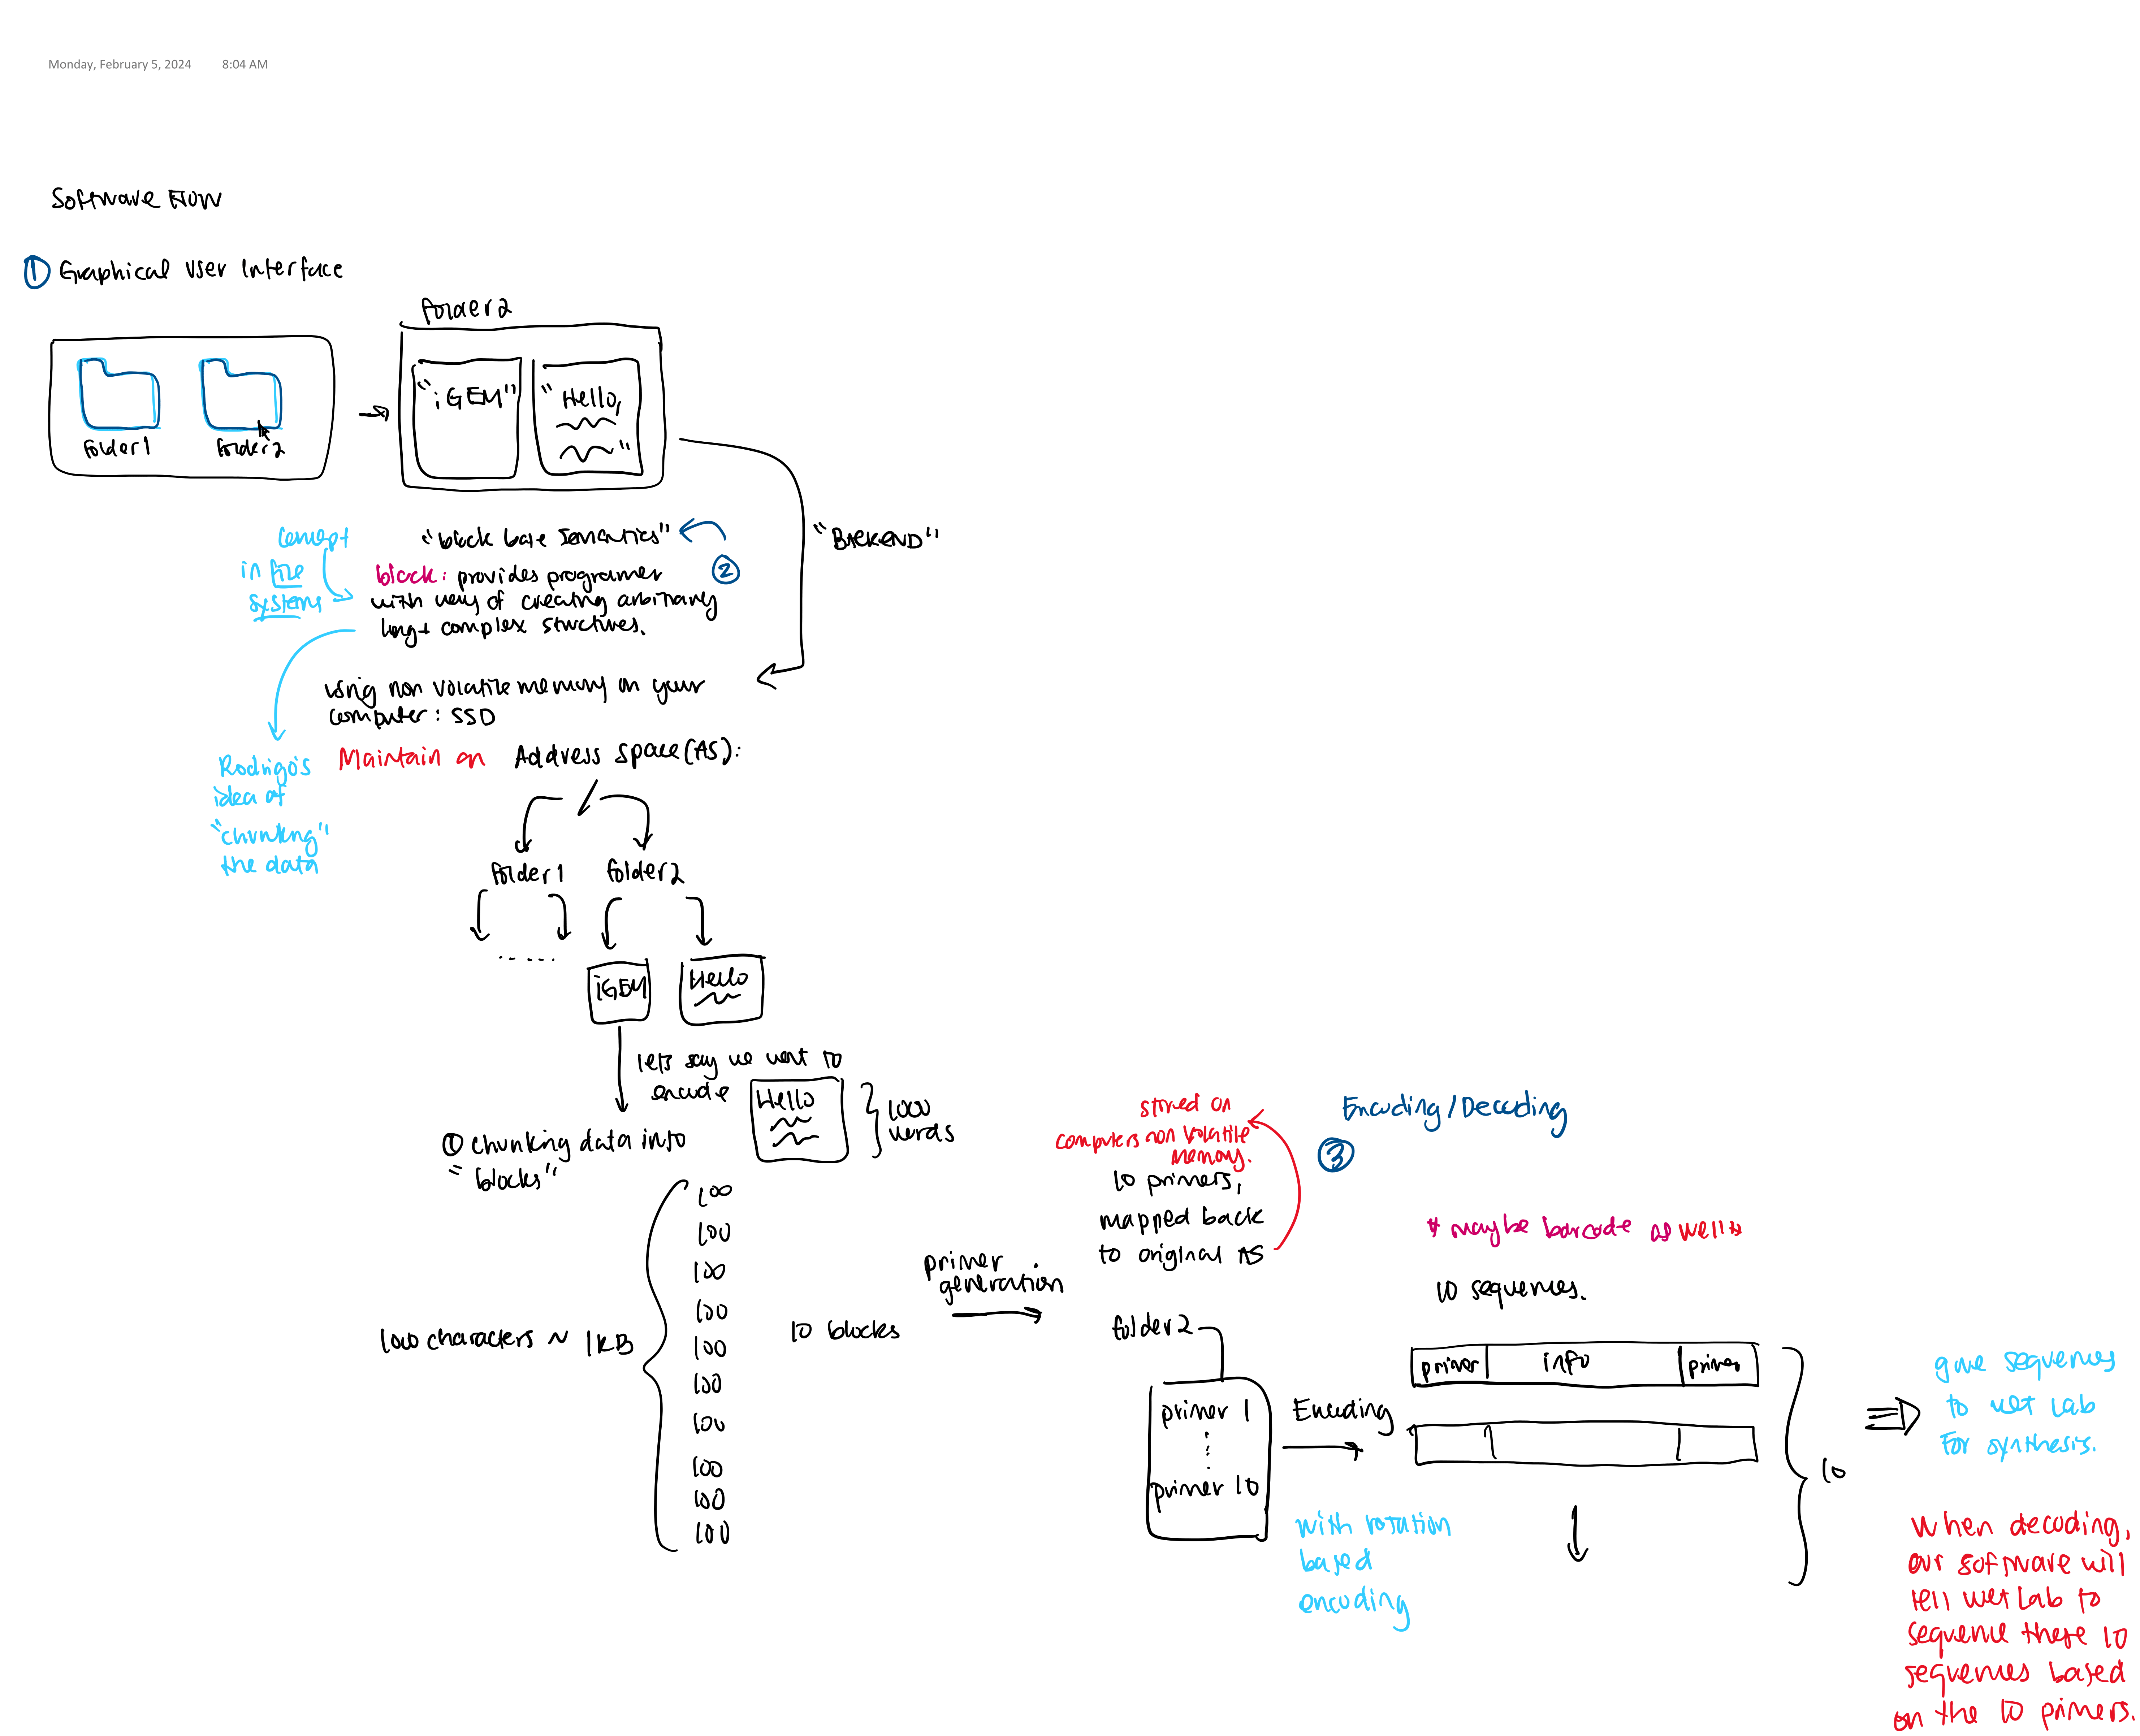 Monday, February 5, 2024 8:04 AM
Software Flow
① Graphical User Interface
folder1
folder2
folder2
"iGEM"
"Hello,
"
"BACKEND"
concept
in file
systems
"block base semantics"
②
block: provides programer
with way of creating arbitrary
long + complex structures.
using non volatile memory on your
computer: SSD
Rodrigo's
idea of
"chunking"
the data
Maintain an Address space (AS):
/
folder1 folder2
.....
iGEM
Hello
lets say we want to
encode
Hello
1000
words
① chunking data into
"blocks"
1000 characters ~ 1KB
100
100
100
100
100
100
100
100
100
100
10 blocks
primer
generation
stored on
computers non volatile
memory.
10 primers,
mapped back
to original AS
folder2
primer 1
primer 10
Encoding/Decoding
③
Encoding
with rotation
based
encoding
* maybe barcode as well *
10 sequences.
primer info primer
10
give sequences
to wet lab
for synthesis.
When decoding,
our software will
tell wet lab to
sequence these 10
sequences based
on the 10 primers.